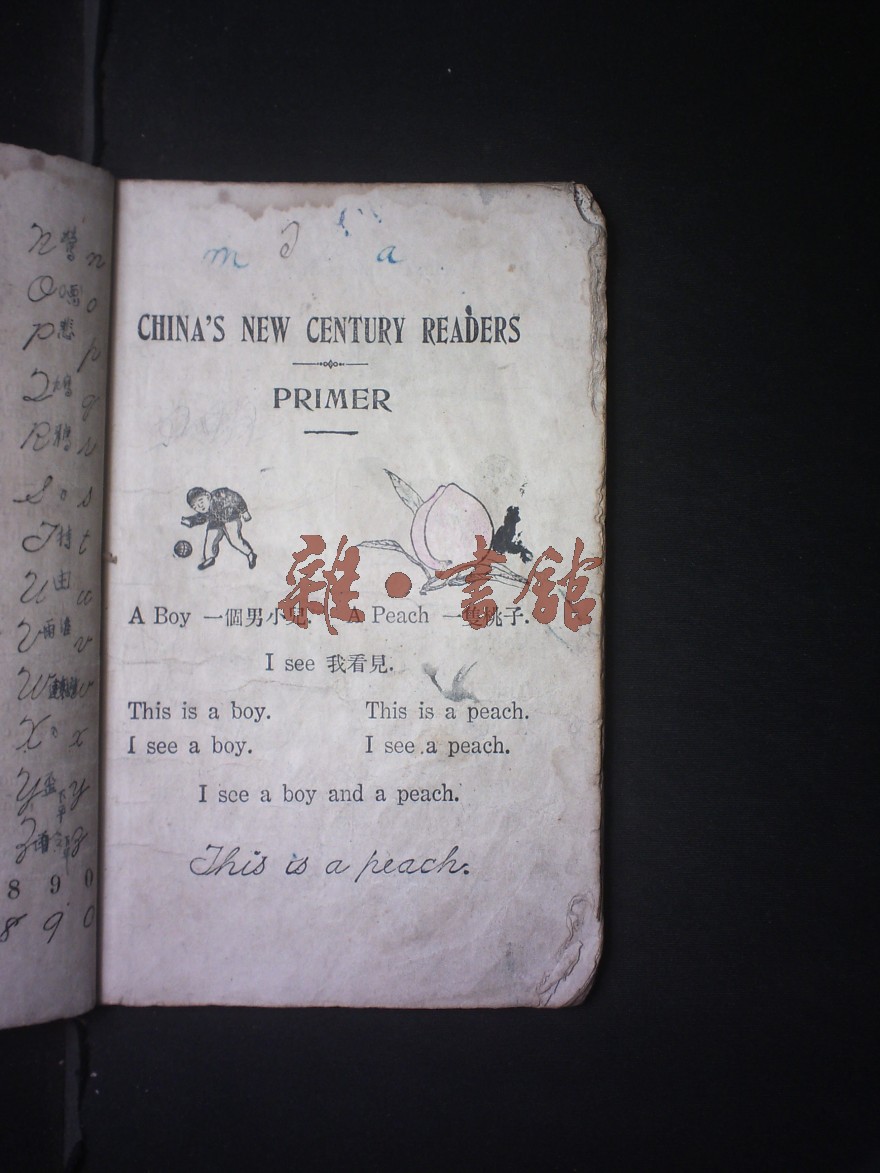 N 鶯 n
O o
P 悲 p
Q q
R 鴉 r
S s
T t
U 由 u
V v
W w
X x
Y 歪 y
Z z
8 9 0
8 9 0
m a
CHINA'S NEW CENTURY READERS
PRIMER
雜·書館
A Boy 一個男小兒. A Peach 一隻桃子.
I see 我看見.
This is a boy. This is a peach.
I see a boy. I see a peach.
I see a boy and a peach.
This is a peach.